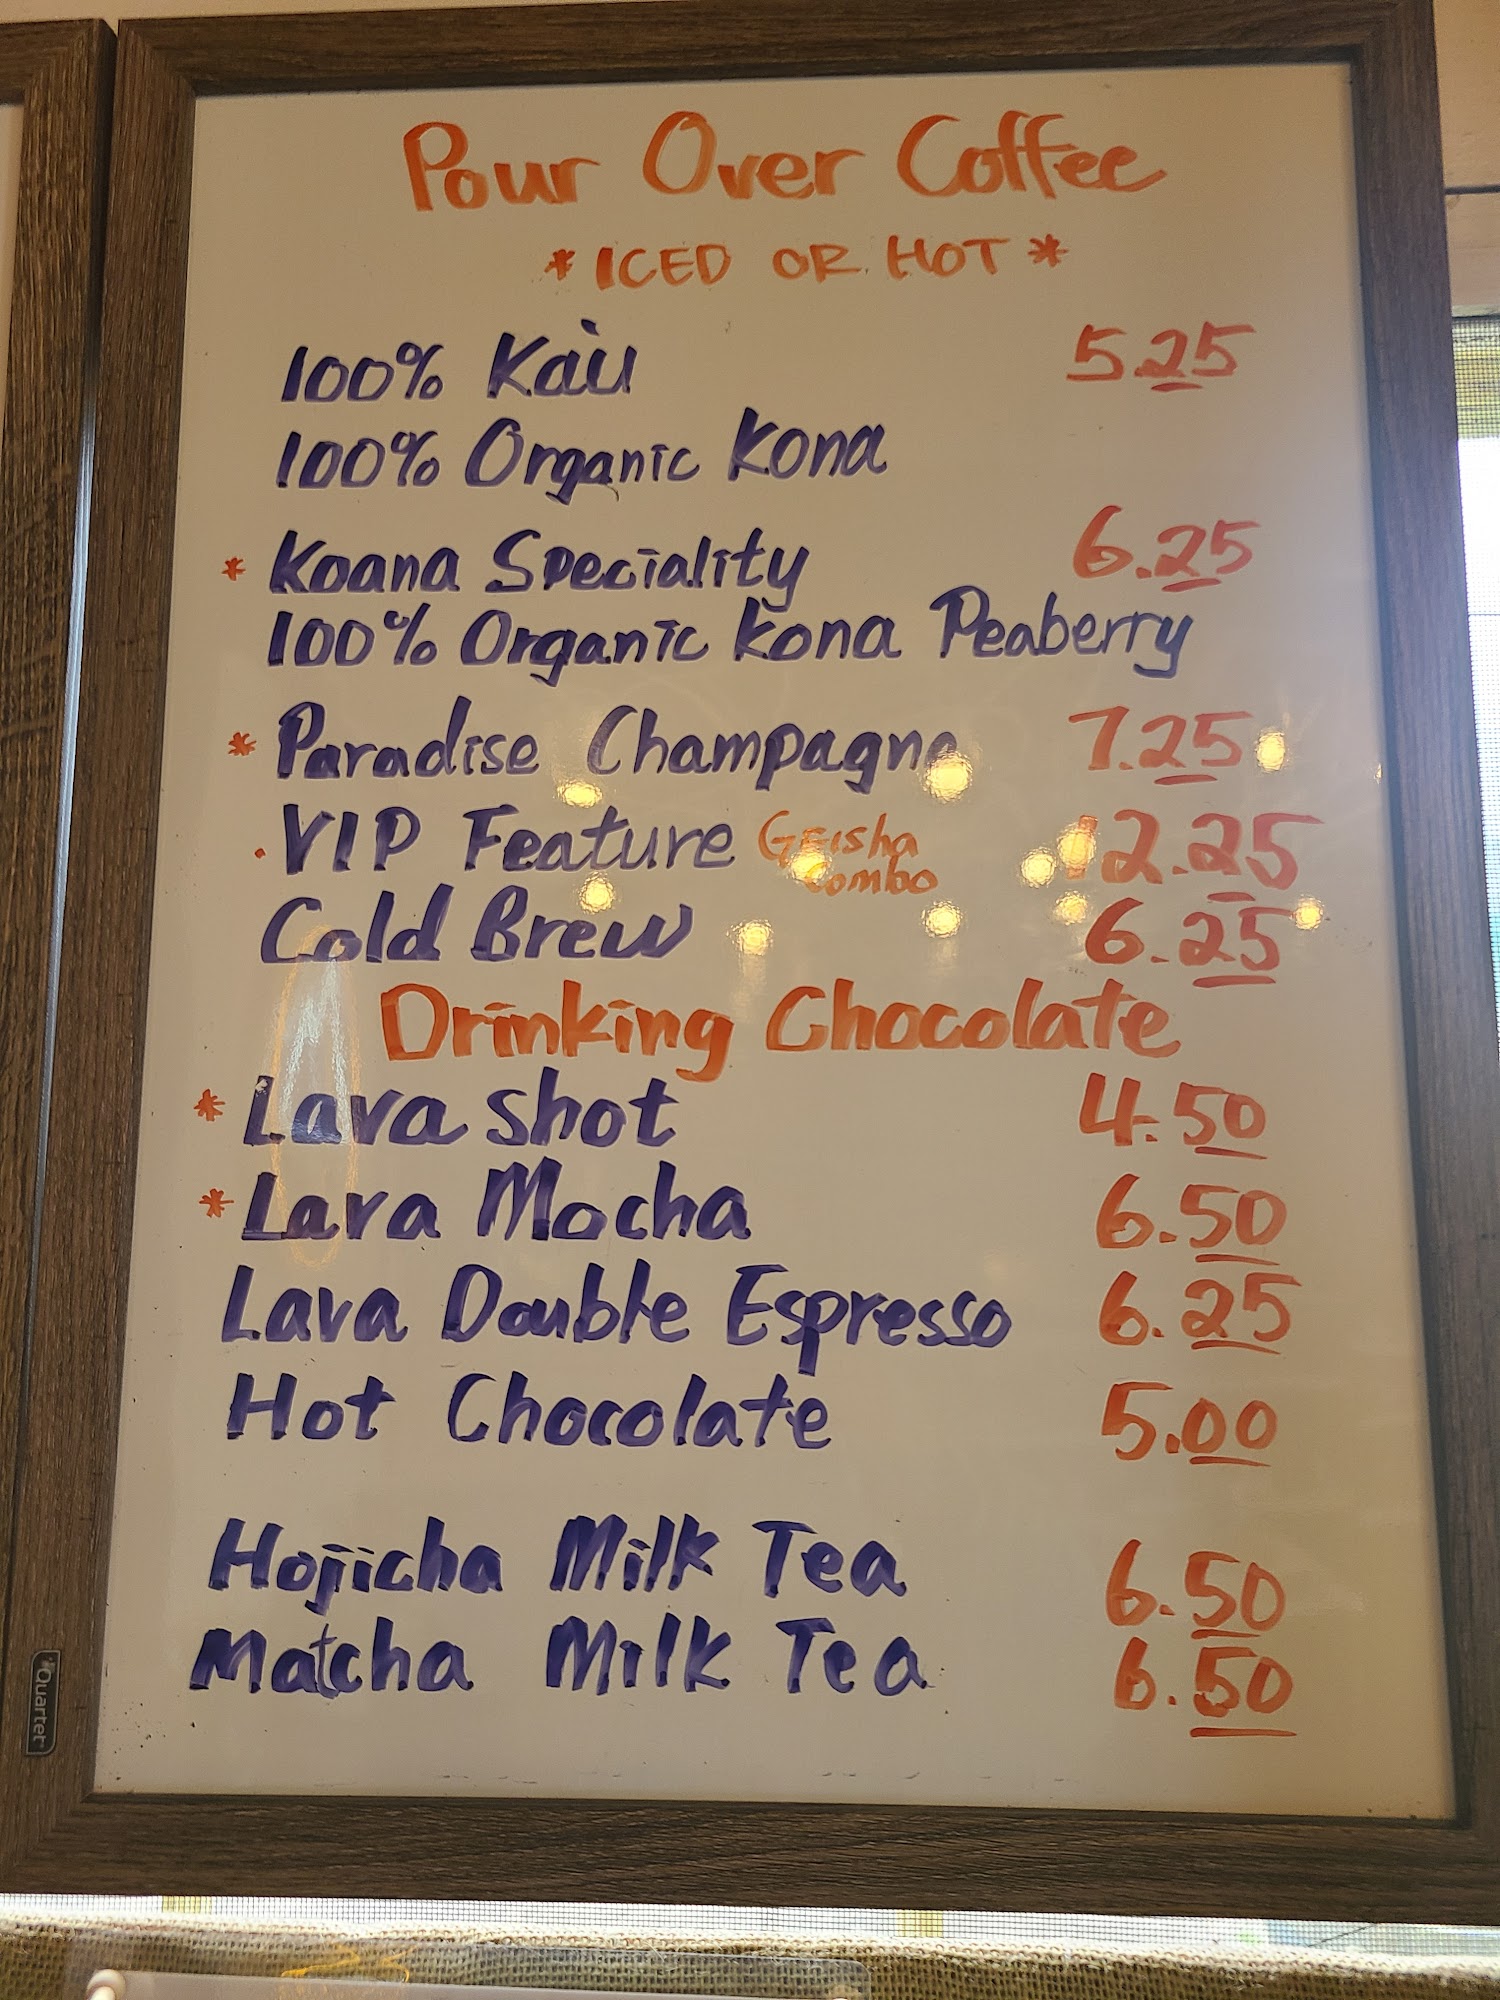 Pour Over Coffee
* ICED OR HOT *
100% Kàu 5.25
100% Organic Kona
* Koana Speciality 6.25
100% Organic Kona Peaberry
* Paradise Champagne 7.25
. VIP Feature Geisha Combo 12.25
Cold Brew 6.25
Drinking Chocolate
* Lava Shot 4.50
* Lava Mocha 6.50
Lava Double Espresso 6.25
Hot Chocolate 5.00
Hojicha Milk Tea 6.50
Matcha Milk Tea 6.50
Quartet